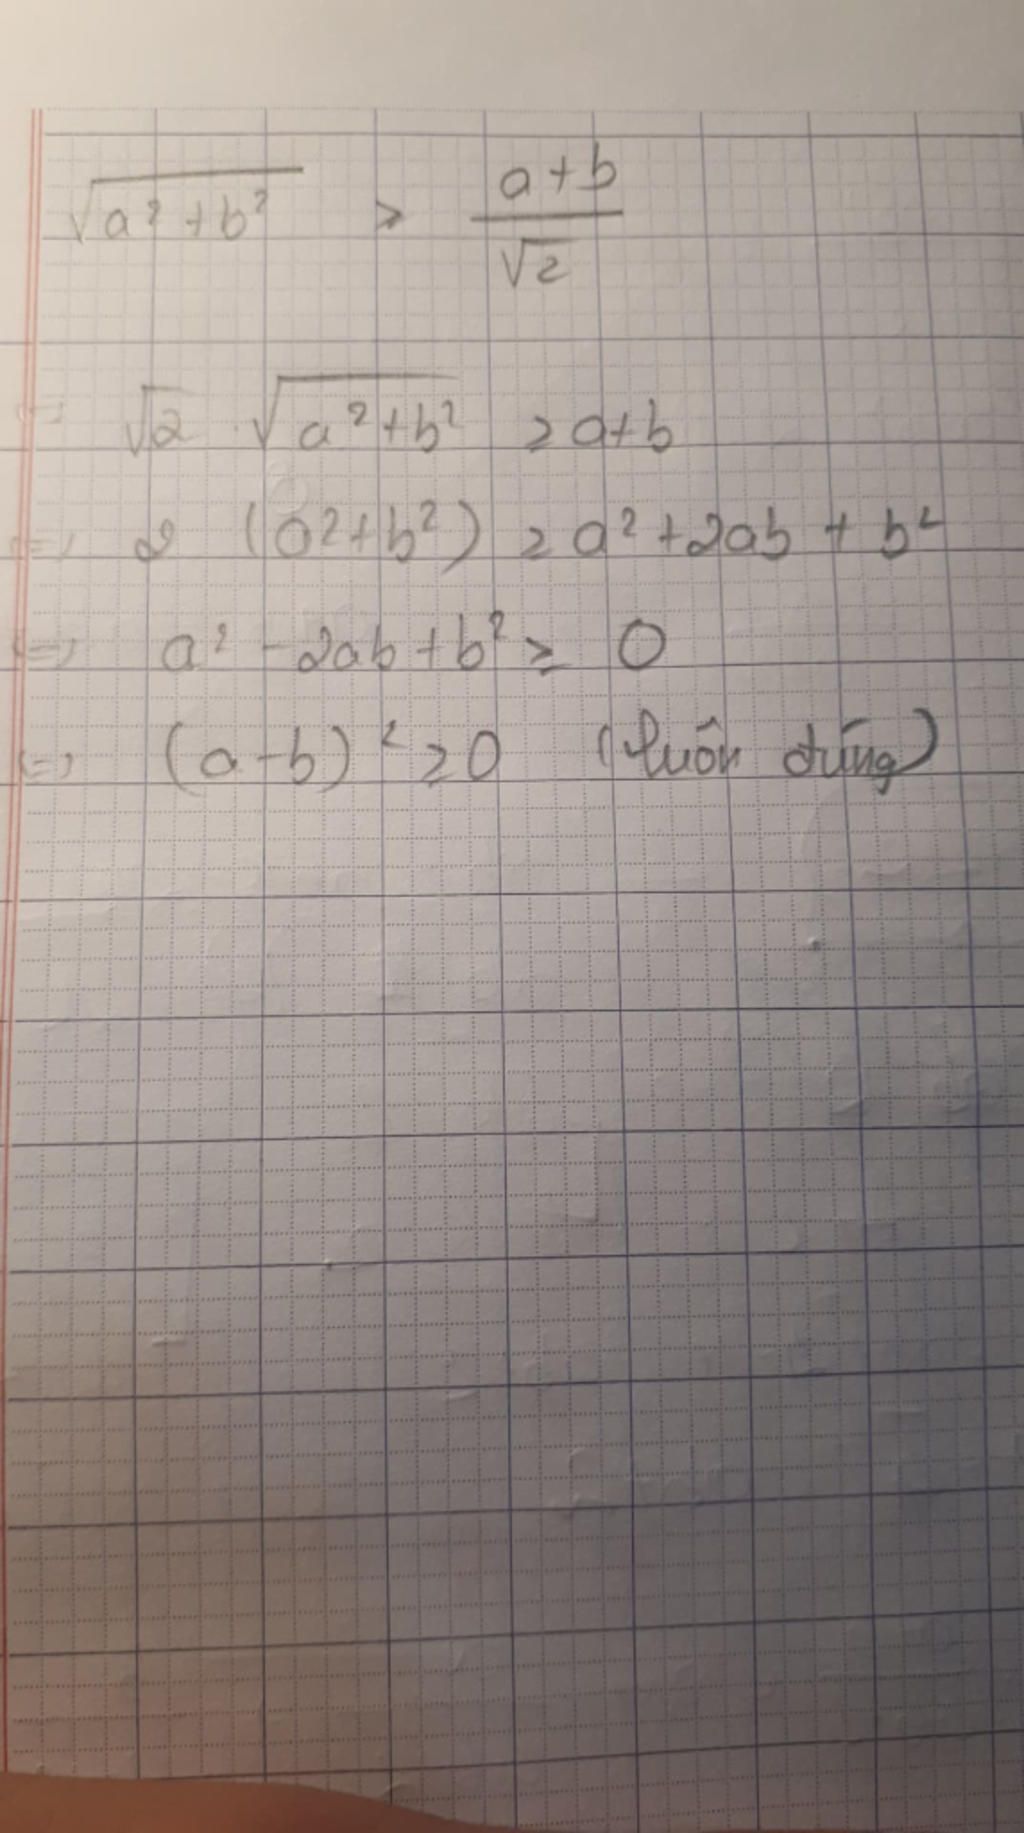 √(a²+b²) ≥ (a+b)/√2
⇔ √2 . √(a²+b²) ≥ a+b
⇔ 2 (a²+b²) ≥ a²+2ab + b²
⇔ a² - 2ab + b² ≥ 0
⇔ (a-b)² ≥ 0 (luôn đúng)